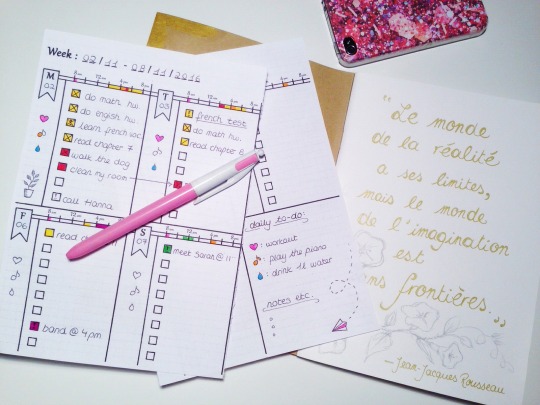 Week: 02/11 - 08/11/2016
M
02
do math hw.
do english hw.
learn french voc
read chapter 7
walk the dog
clean my room
! call Hanna
T
03
! french test
do math hw.
read chapter 8
F
06
read
! band @ 4pm
S
07
! meet Sarah @ 11
daily to-do:
: workout
: play the piano
: drink 1L water
notes etc.
"Le monde
de la réalité
a ses limites,
mais le monde
de l'imagination
est
frontières."
— Jean-Jacques Rousseau